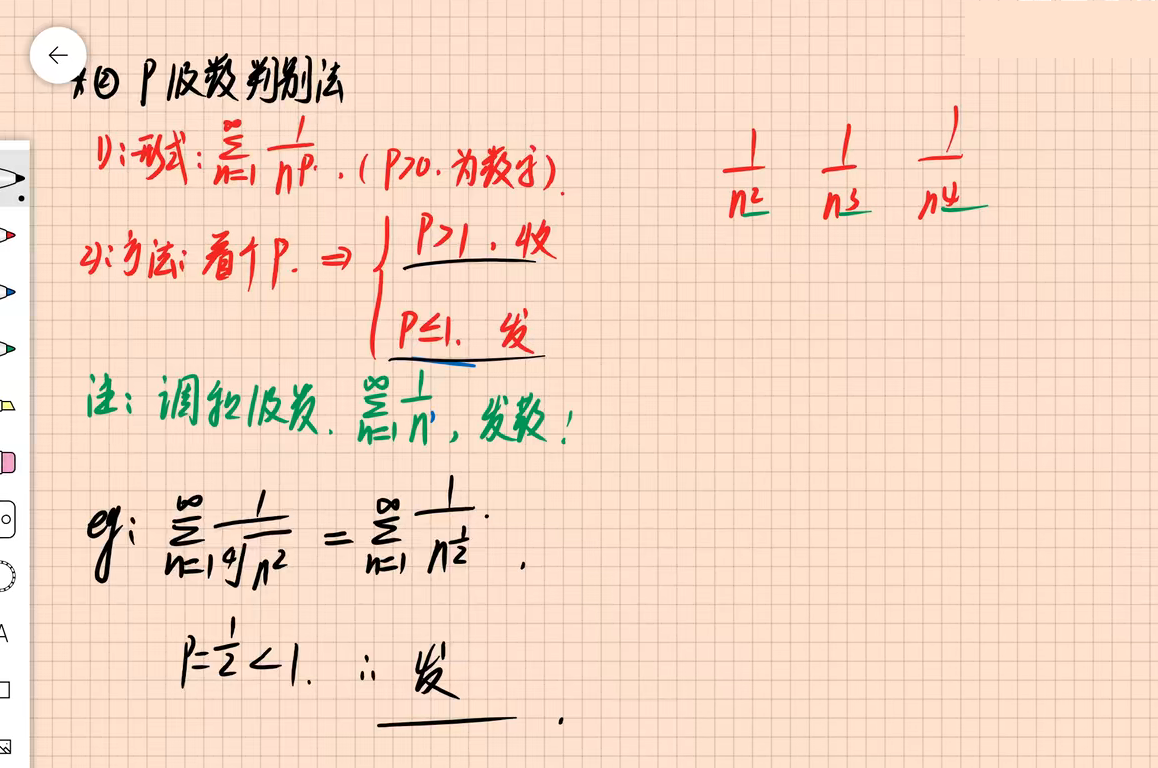 ② P级数判别法
1): 形式: \sum_{n=1}^{\infty} \frac{1}{n^p}. (P>0. 为数字).
\frac{1}{n^2} \frac{1}{n^3} \frac{1}{n^4}
2): 方法: 看个P. ⇒ { P>1, 收
P≤1. 发
注: 调和级数. \sum_{n=1}^{\infty} \frac{1}{n^1}, 发散!
eg: \sum_{n=1}^{\infty} \frac{1}{\sqrt[4]{n^2}} = \sum_{n=1}^{\infty} \frac{1}{n^{\frac{1}{2}}}.
P=\frac{1}{2}<1. ∴ 发.